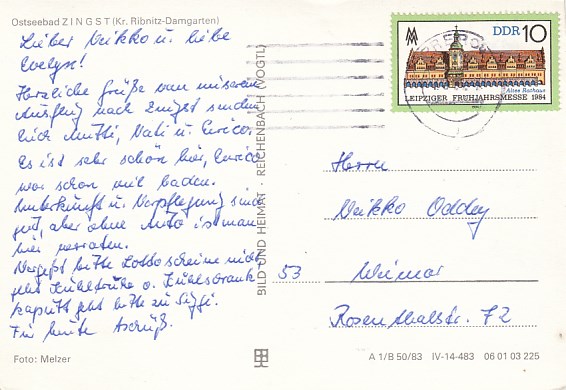 Ostseebad ZINGST (Kr. Ribnitz-Damgarten)
Lieber Veikko u. liebe
Evelyn!
Herzliche Grüße von unserem
Ausflug nach Zingst senden
Euch Mutti, Vati u. Enrico.
Es ist sehr schön hier, Enrico
war schon mit baden.
Unterkunft u. Verpflegung sind
gut, aber ohne Auto ist man
hier verraten.
Vergeßt bitte Lottoscheine nicht
geht Kühltruhe o. Kühlschrank
kaputt geht bitte zu
Für heute Tschüß.
Foto: Melzer
BILD UND HEIMAT · REICHENBACH (VOGTL)
DDR 10
Altes Rathaus
LEIPZIGER FRÜHJAHRSMESSE 1984
Herrn
Veikko Oddey
53 Weimar
Rosenthalstr. 72
A 1/B 50/83 IV-14-483 06 01 03 225